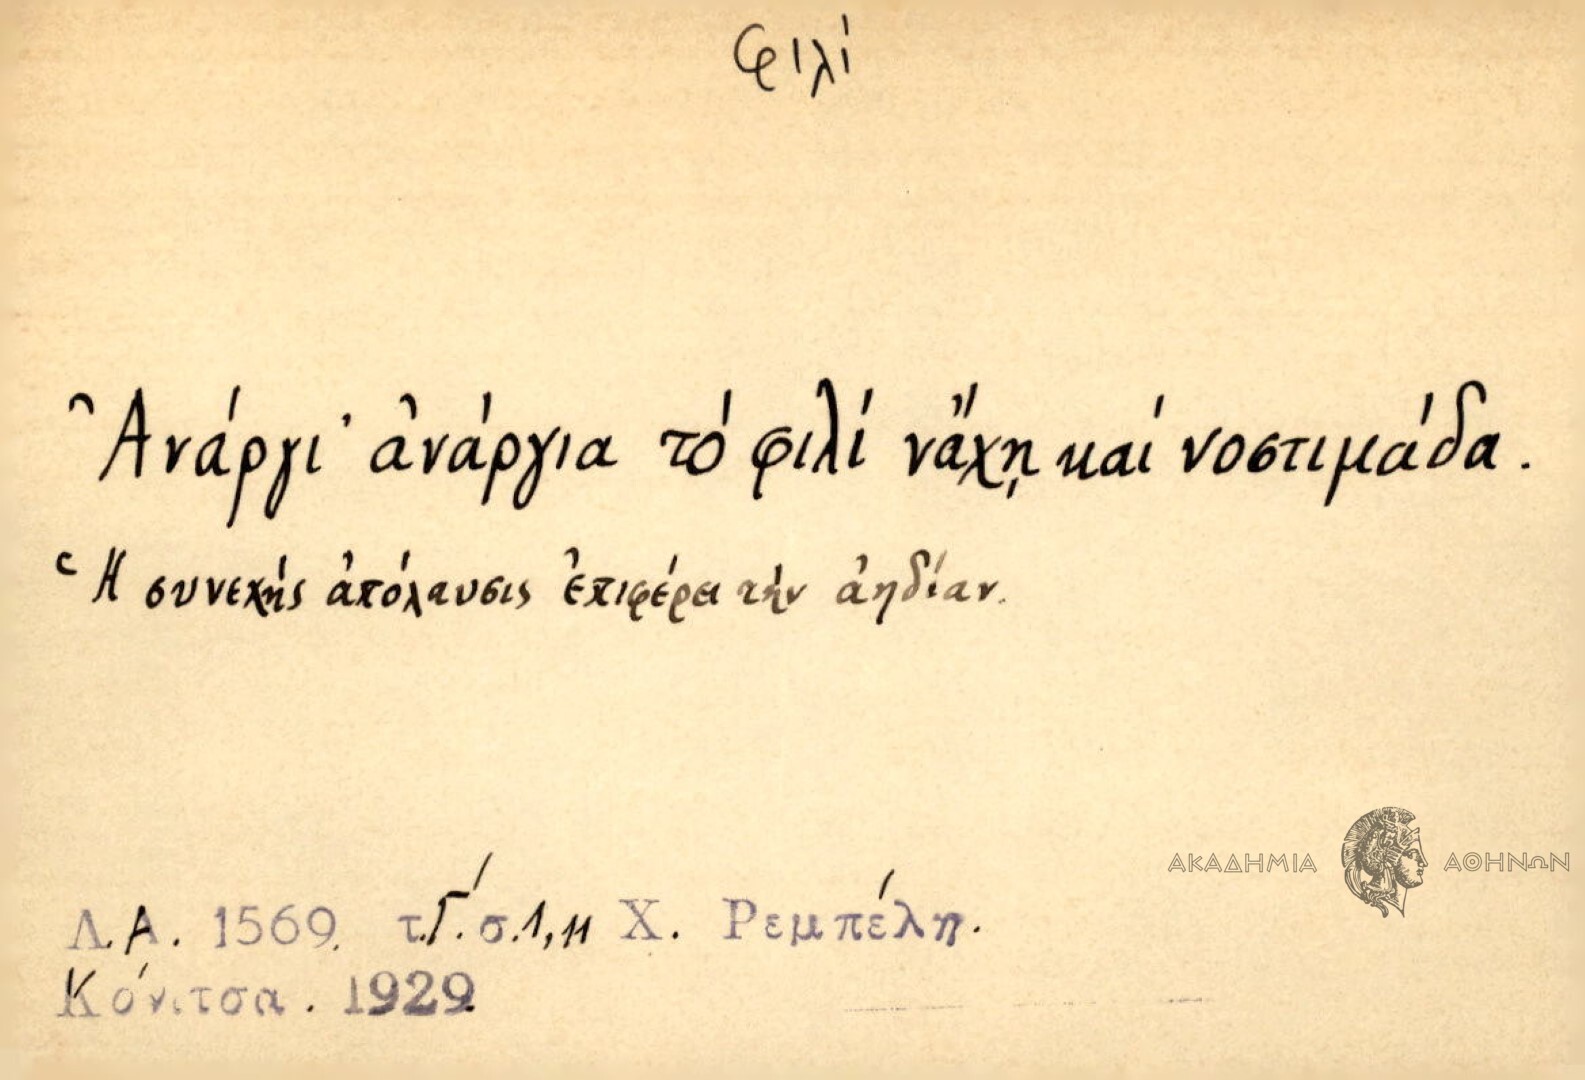 φιλί
Ἀνάργι' ἀνάργια τό φιλί νἄχῃ καί νοστιμάδα.
Ἡ συνεχής ἀπόλαυσις ἐπιφέρει τήν ἀηδίαν.
ΑΚΑΔΗΜΙΑ ΑΘΗΝΩΝ
Λ.Α. 1569. τ.Γ΄. σ.1,11 Χ. Ρεμπέλη.
Κόνιτσα. 1929.